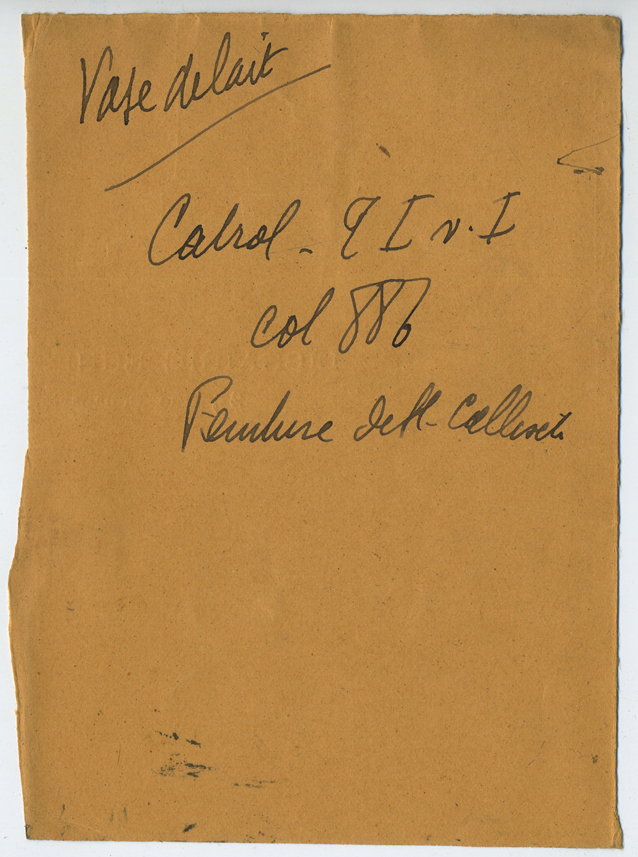 Vase de lait
Cabrol - T I v. I
col 886
Peinture de St- Callixte